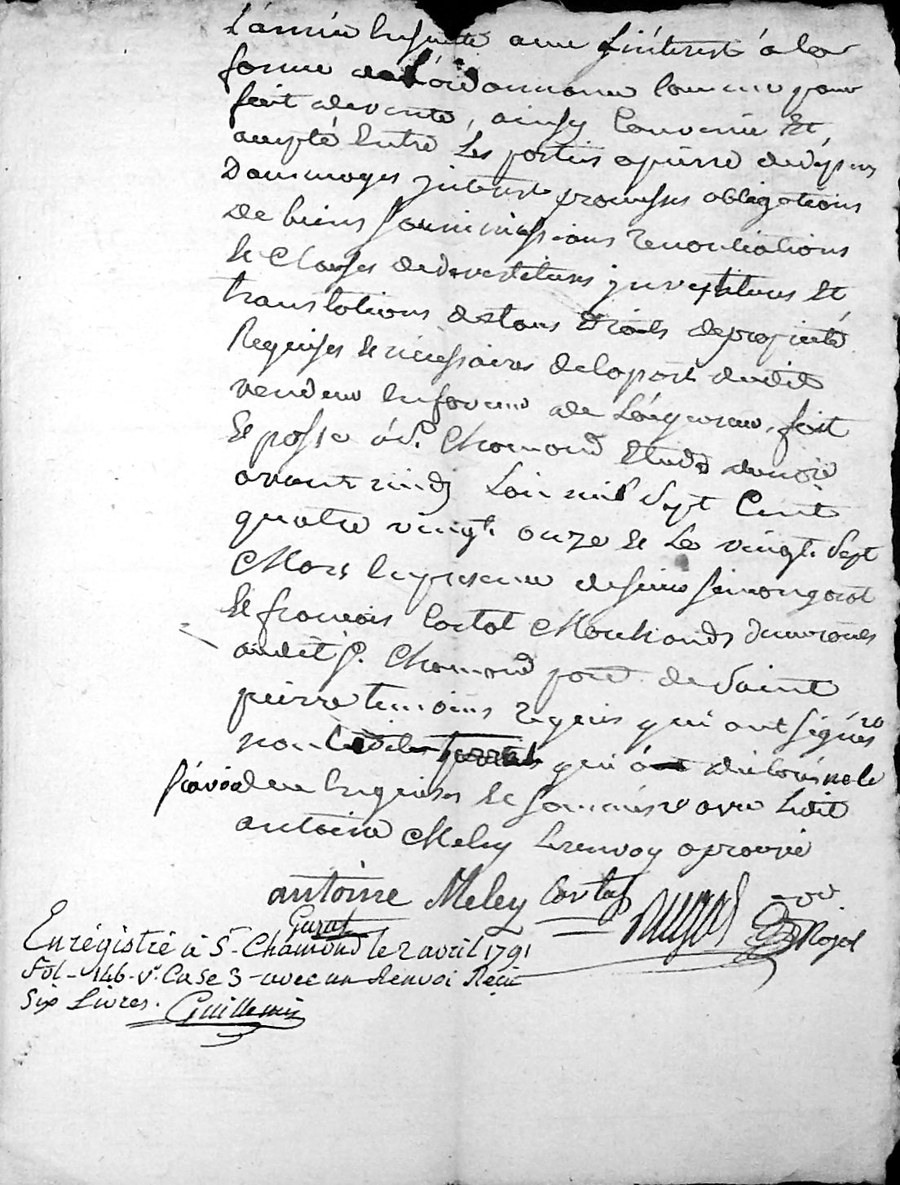 L'année ensuitte avec L'intérest à la
forme de L'ordonnance comme pour
fait de vente, ainsy Convenu Et
accepté Entre Les parties a peine de depens
Dommages interest promesses obligations
de biens soumissions renonciations
Et Clauses de devestitures investitures Et
translations de tous Droits de proprieté
Requises Et nécessaires de la part dudit
vendeur En faveur de L'acquereur, fait
Et passé à St. Chamond Etude du noire
avant midy L'an mil Sept Cent
quatre vingt onze Et Le vingt Sept
Mars En presence de sieurs Simon garat
Et francois Cortot Marchands
audit St. Chamond parr. de Saint
pierre temoins requis qui ont signés
non qui a declaré ne le
savoir de ce Enquis Et sommés avec Ledit
antoine Meley Lrenvoy aprouvé
antoine Meley Cortot
Garat
Enrégistré à St. Chamond le 2 avril 1791
Fol. 146. V. Case 3 - avec un Renvoi Reçu
Six Livres. Guillemin